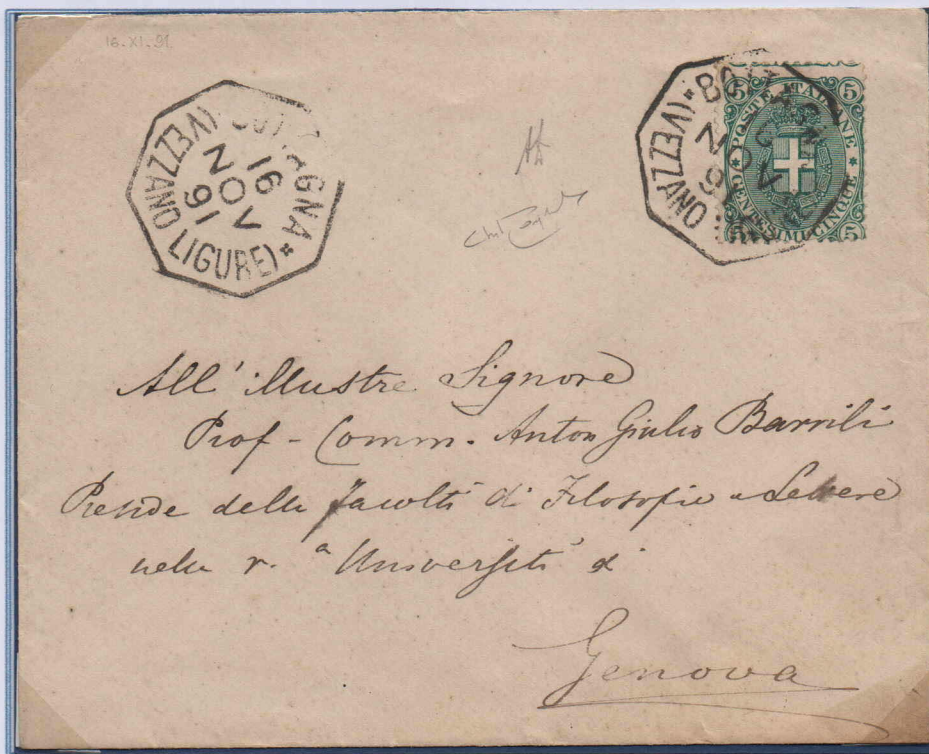 16.XI.91
BOTTAGNA
(VEZZANO LIGURE)
16
NOV
91
BOTTAGNA
(VEZZANO
NOV
91
5 5
POSTE ITALIANE
CENTESIMI CINQUE
5 5
All' illustre Signore
Prof - Comm. Anton Giulio Barrili
Preside della Facoltà di Filosofia e Lettere
nella r.ª Università di
Genova